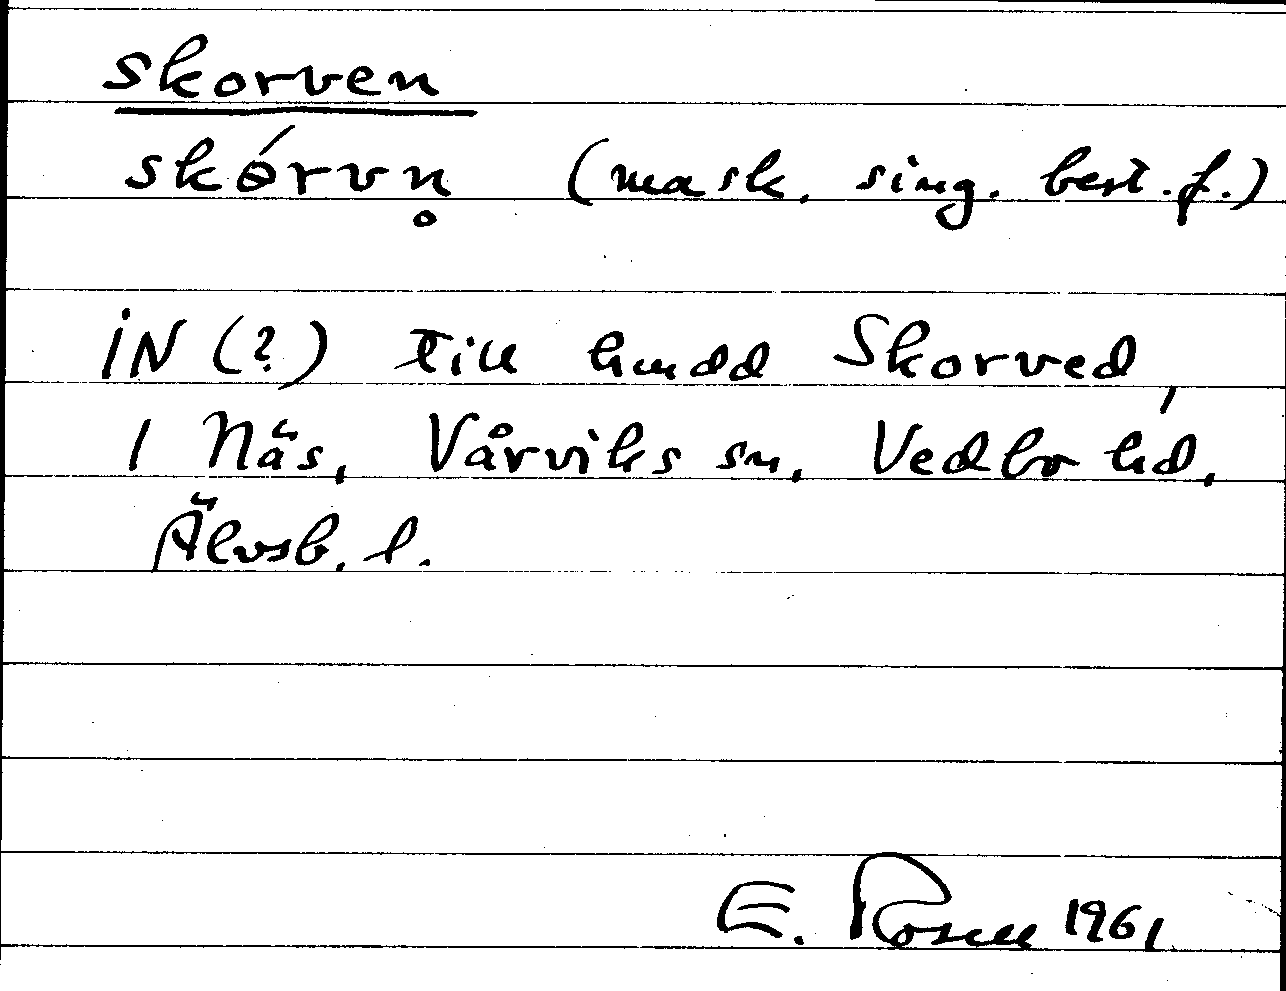 skorven
skǿrvn̥ (mask. sing. best. f.)
iN (?) till hmdd Skorved,
1 Näs, Vårviks sn, Vedbo hd,
Älvsb. l.
E. Rosell 1961